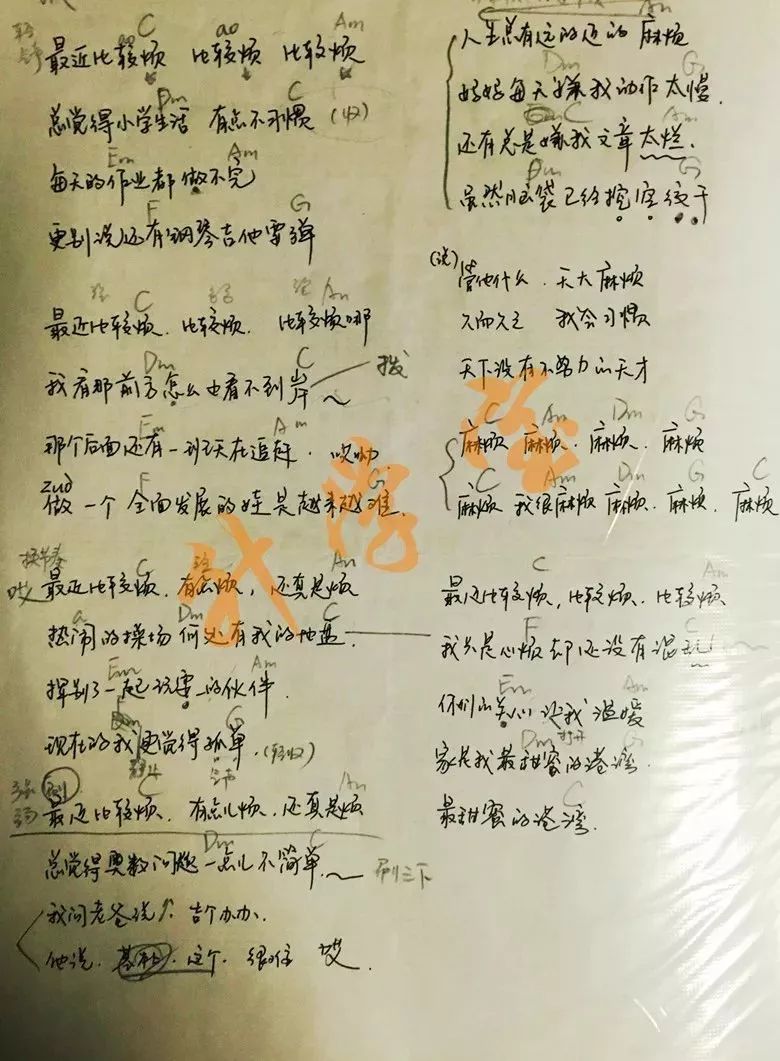 C ao Am
最近比较烦 比较烦 比较烦
Dm C
总觉得小学生活 有点不习惯 (收)
Em Am
每天的作业都做不完
F G
更别说还有钢琴吉他要弹
C Am
最近比较烦. 比较烦. 比较烦哪
Dm C
我看那前方怎么也看不到岸 拨
Em Am
那个后面还有一班天天在追赶. 哎哟
zuò F G
做一个全面发展的娃是越来越难.
换节奏 C Am
哎 最近比较烦, 有点烦, 还真是烦
a Dm C
热闹的操场何处有我的地盘.
Em Am
挥别了一起玩耍的伙伴.
G
现在的我更觉得孤单. (轻收)
C Am
最近比较烦. 有点儿烦. 还真是烦
Dm C
总觉得奥数问题一点儿不简单. 刷三下
我问老爸说, 吉个办办.
他说. 这个. 很难 哎.
Am
人生总有远的近的麻烦
Dm G
妈妈每天嫌我动作太慢.
C Am
还有总是嫌我文章太烂.
Dm G
虽然脑袋已经挖空绞干
(说) 管他什么. 天大麻烦
久而久之 我会习惯
天下没有不努力的天才
C Am Dm G
麻烦 麻烦. 麻烦. 麻烦
C Am Dm G C
麻烦 我很麻烦 麻烦. 麻烦. 麻烦
C Am
最近比较烦, 比较烦. 比较烦
F C
我只是心烦却还没有混乱
Em Am
你们的关心让我温暖
Dm 打开 G
家是我最甜蜜的港湾.
C
最甜蜜的港湾.